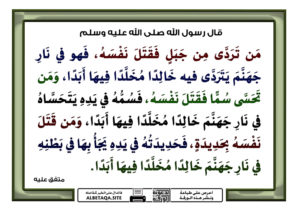 قال رسول الله صلى الله عليه وسلم
مَن تَرَدَّى مِن جَبَلٍ فَقَتَلَ نَفْسَهُ، فَهو في نَارِ
جَهَنَّمَ يَتَرَدَّى فيه خَالِدًا مُخَلَّدًا فِيهَا أَبَدًا، وَمَن
تَحَسَّى سُمًّا فَقَتَلَ نَفْسَهُ، فَسُمُّهُ في يَدِهِ يَتَحَسَّاهُ
في نَارِ جَهَنَّمَ خَالِدًا مُخَلَّدًا فِيهَا أَبَدًا، وَمَن قَتَلَ
نَفْسَهُ بِحَدِيدَةٍ، فَحَدِيدَتُهُ في يَدِهِ يَجَأُ بِهَا في بَطْنِهِ
في نَارِ جَهَنَّمَ خَالِدًا مُخَلَّدًا فِيهَا أَبَدًا.
متفق عليه
احرص على طباعة
ونشر هذه الورقة
ALBETAQA.SITE